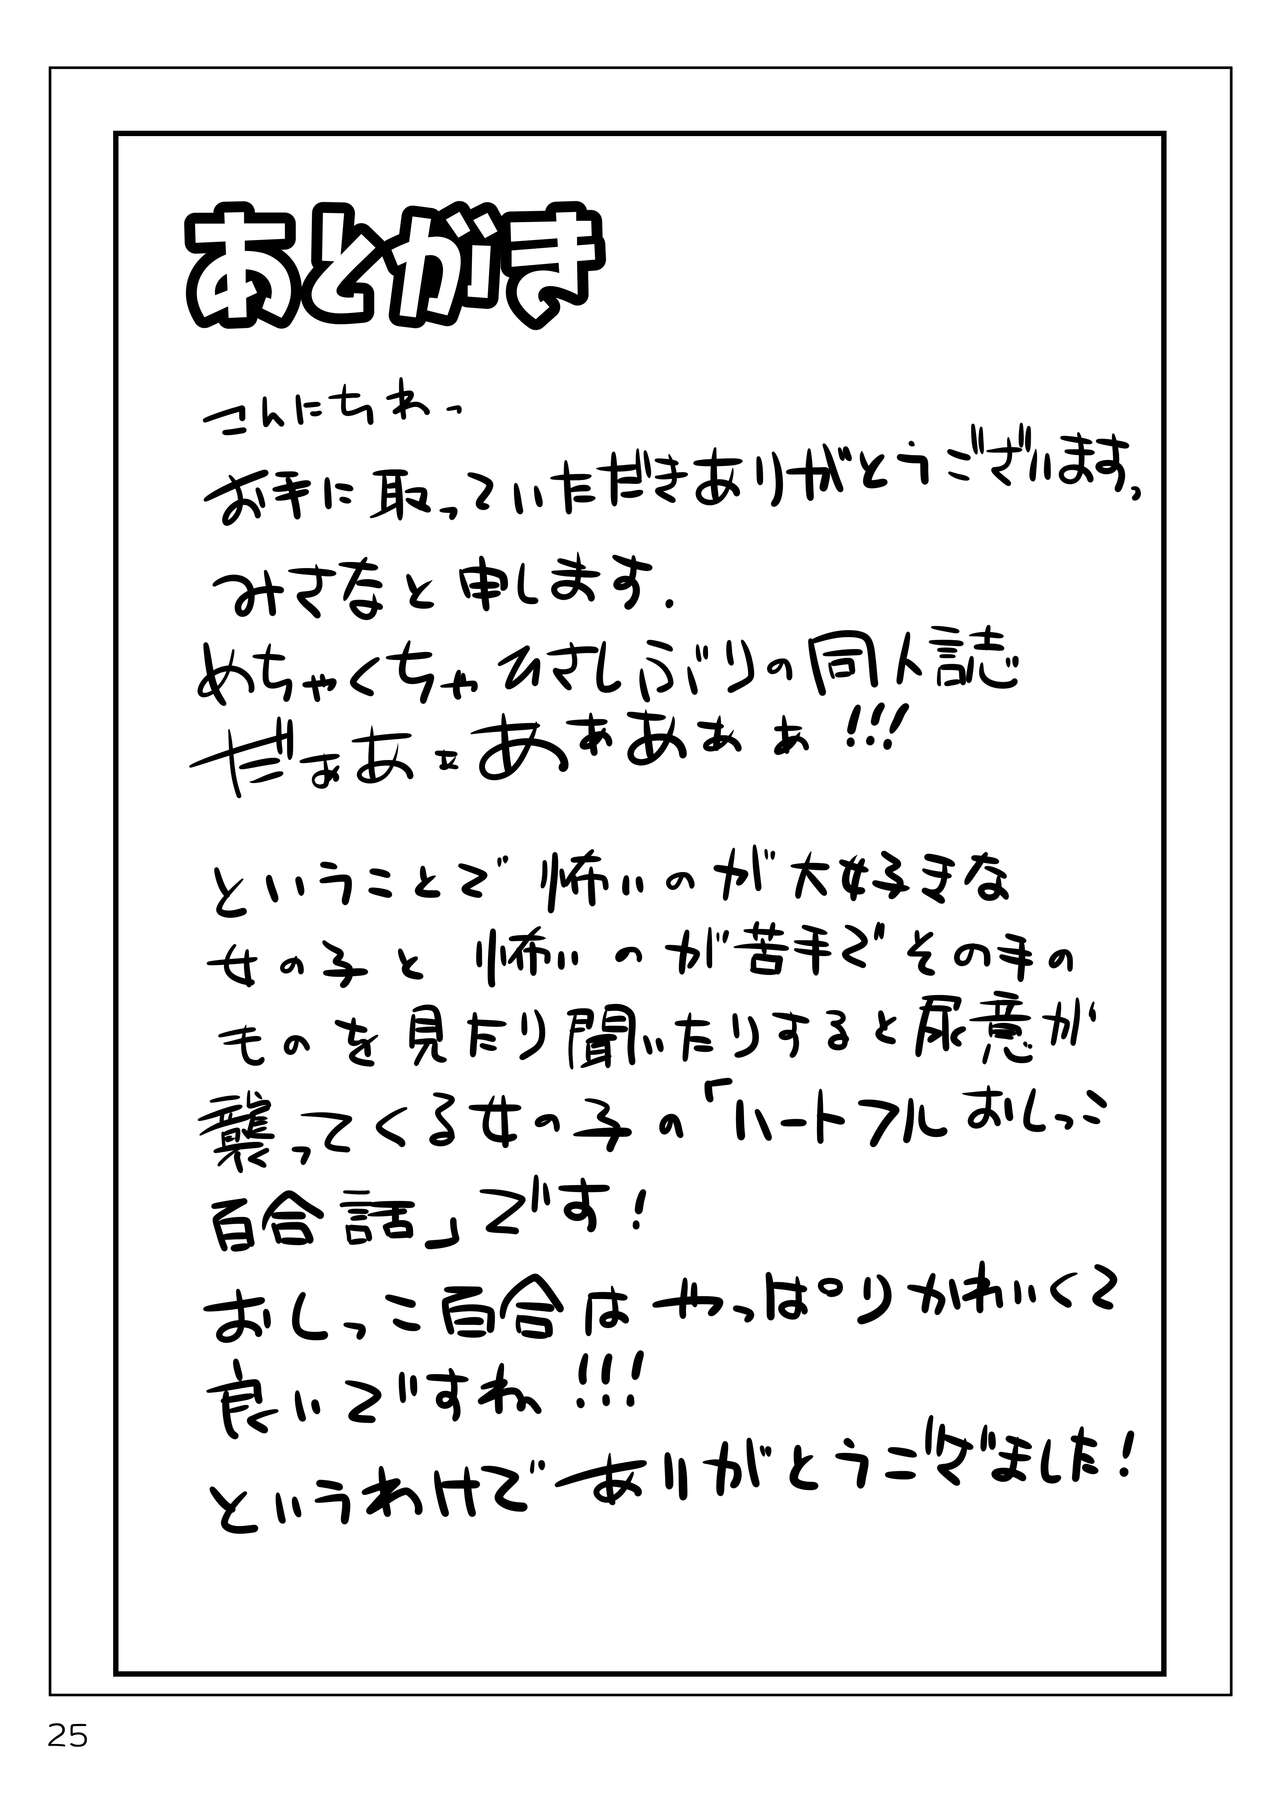 あとがき
こんにちわっ
お手に取っていただきありがとうございます。
みさなと申します.
めちゃくちゃひさしぶりの同人誌
だぁあぁあぁあぁぁ!!!
ということで怖いのが大好きな
女の子と怖いのが苦手でその手の
ものを見たり聞いたりすると尿意が
襲ってくる女の子の「ハートフルおしっこ
百合話」です!
おしっこ百合はやっぱりかわいくて
良いですね!!!
というわけでありがとうござました!
25